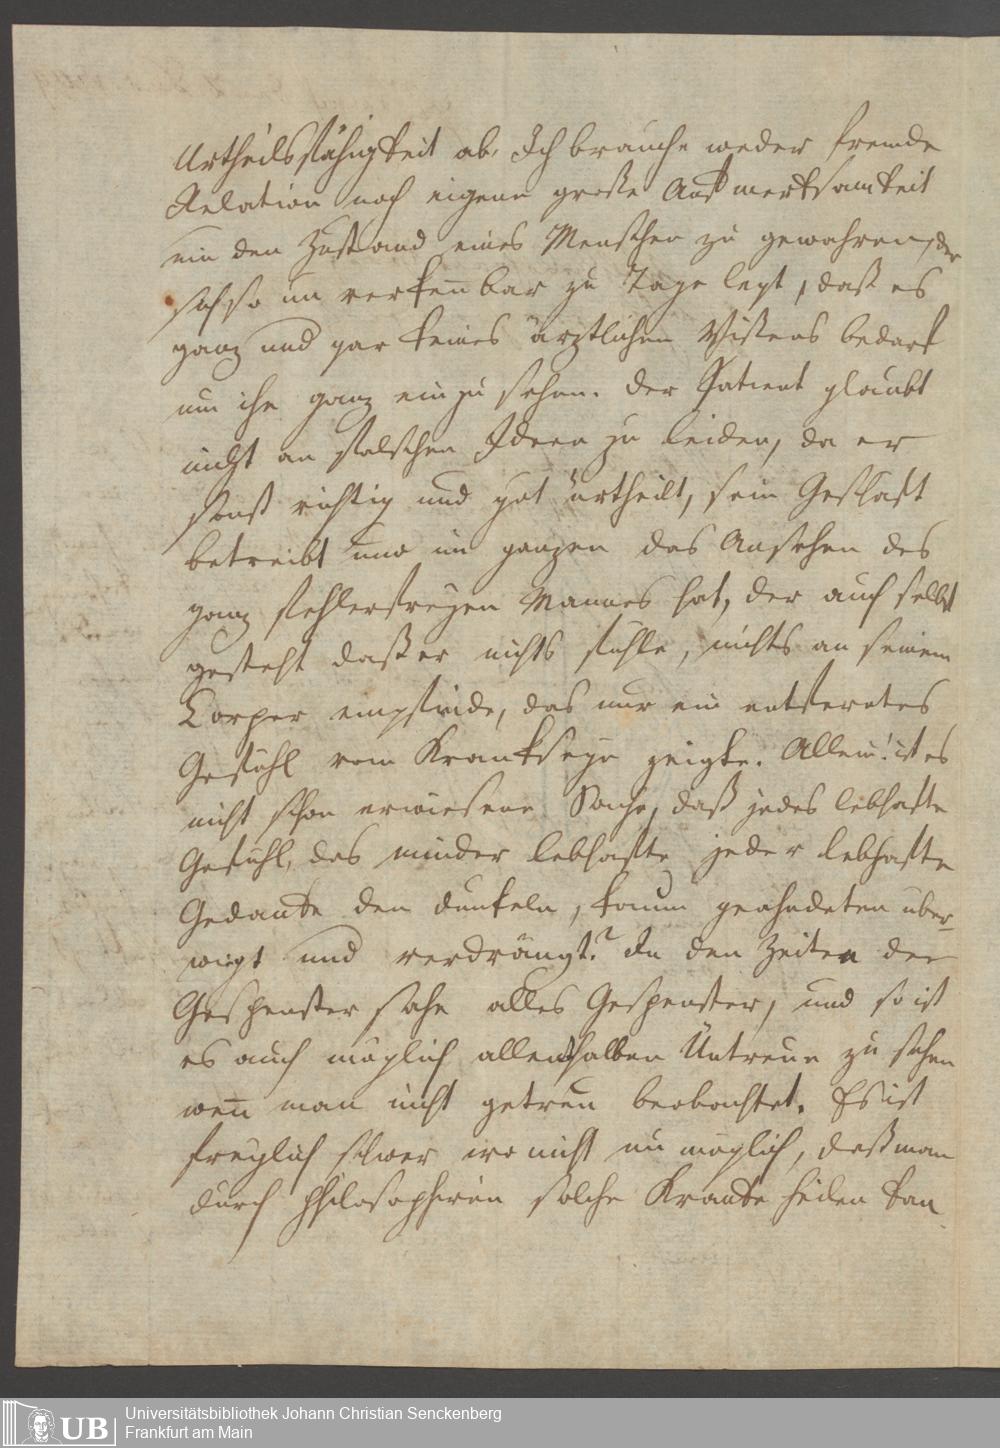 Urtheilsfähigkeit ab. Ich brauche weder fremde
Relation noch eigene große Aufmerksamkeit
um den Zustand eines Menschen zu gewahren, der
sich so un verkeñbar zu Tage legt, daß es
ganz und gar keines ärztlichen Wißens bedarf
um ihn ganz ein zu sehen. Der Patient glaubt
nicht an falschen Ideen zu leiden, da er
sonst richtig und gut urtheilt, sein Geschäft
betreibt und im ganzen das Ansehen des
ganz fehlerfreyen Mannes hat, der auch selbst
gesteht daß er nichts fühle, nichts an seinem
Corper empfinde, das nur ein entferntes
Gefühl vom Krankseyn zeigte. Allein! ist es
nicht schon erwiesene Sache, daß jedes lebhafte
Gefühl, das minder lebhafte jeder lebhafte
Gedanke den dunkeln, kaum geahndeten über-
wiegt und verdrängt? In den Zeiten der
Gespenster sahe alles Gespenster, und so ist
es auch möglich allenthalben Untreue zu sehen
weñ man nicht getreu beobachtet. Es ist
freylich schwer wo nicht un möglich, daß man
durch philosophiren solche Kranke heilen kan
Universitätsbibliothek Johann Christian Senckenberg
Frankfurt am Main
UB